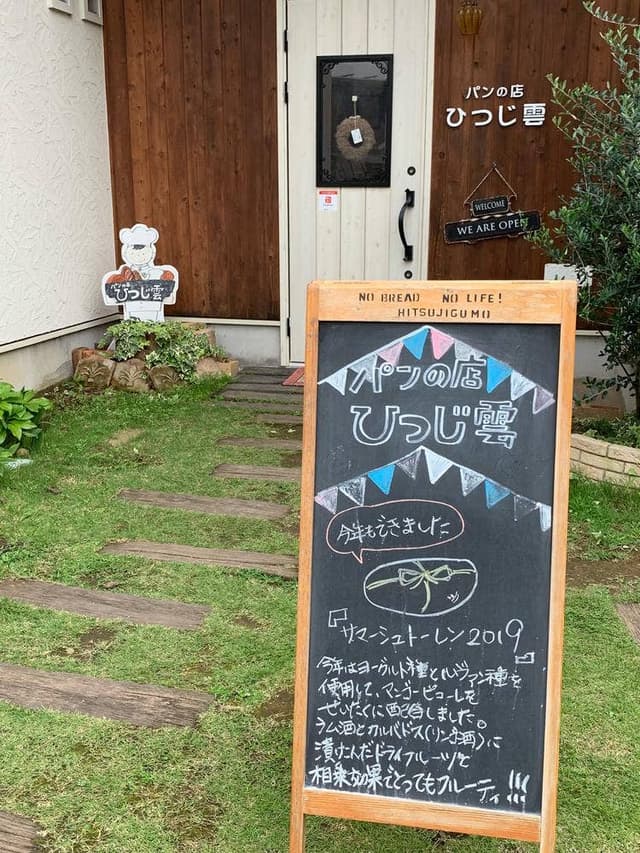 パンの店
ひつじ雲
WELCOME
WE ARE OPEN
パンの店
ひつじ雲
NO BREAD NO LIFE!
HITSUJIGUMO
パンの店
ひつじ雲
今年もできました
『サマーシュトーレン2019』
今年はヨーグルト種とルヴァン種を
使用して、マンゴーピューレを
ぜいたくに配合しました。
ラム酒とカルバドス(リンゴ酒)に
漬けこんだドライフルーツと
相乗効果でとってもフルーティ!!!